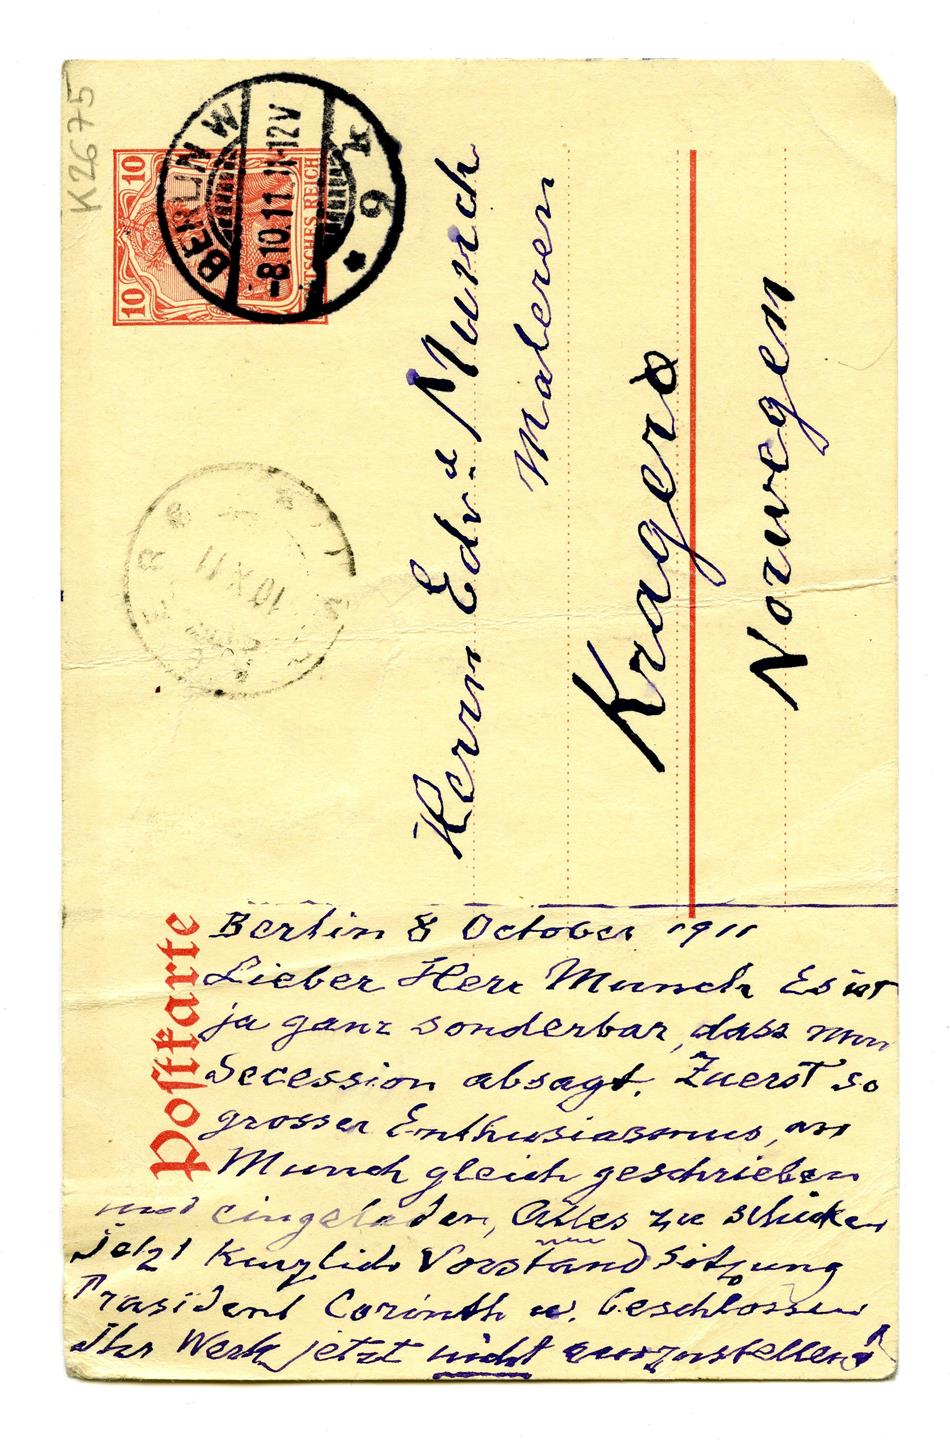 K2675
10 10
DEUTSCHES REICH
BERLIN W
-8.10.11.11-12V
* 9 K
10 X 11
Herrn Edv. Munch
Maleren
Kragerö
Norwegen
Postkarte
Berlin 8 October 1911
Lieber Herr Munch Es ist
ja ganz sonderbar, dass nun
Secession absagt. Zuerst so
grosser Enthusiasmus, an
Munch gleich geschrieben
und eingeladen, Alles zu schicken
Jetzt kurzlich Vorstand Sitzung
Präsident Corinth u. beschlossen
Ihr Werk jetzt nicht auszustellen!